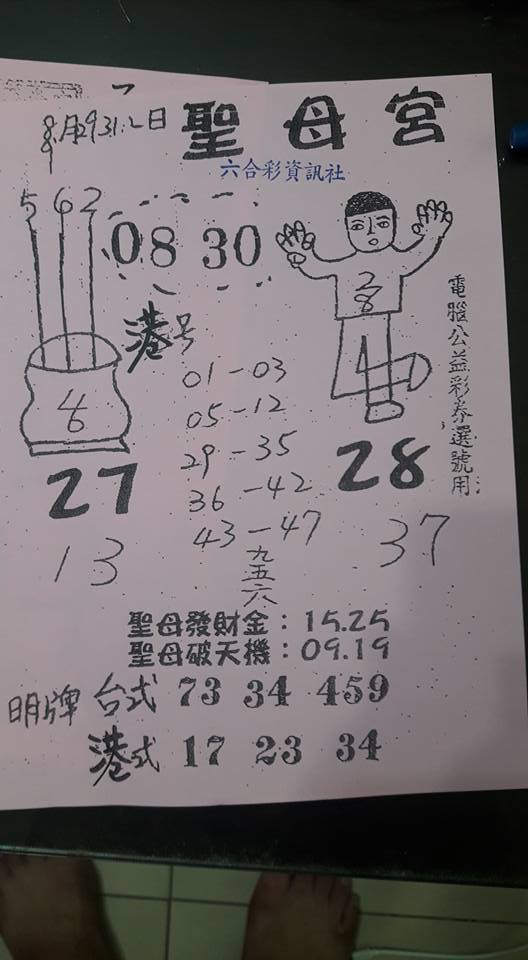 8月29 31.2日
9
聖母宮
六合彩資訊社
5 6 2
08 30
28
電腦公益彩券選號用
港号
01-03
05-12
29-35
36-42
43-47
九五六
4
6
27
28
13
37
聖母發財金:15.25
聖母破天機:09.19
明牌
台式 73 34 459
港式 17 23 34